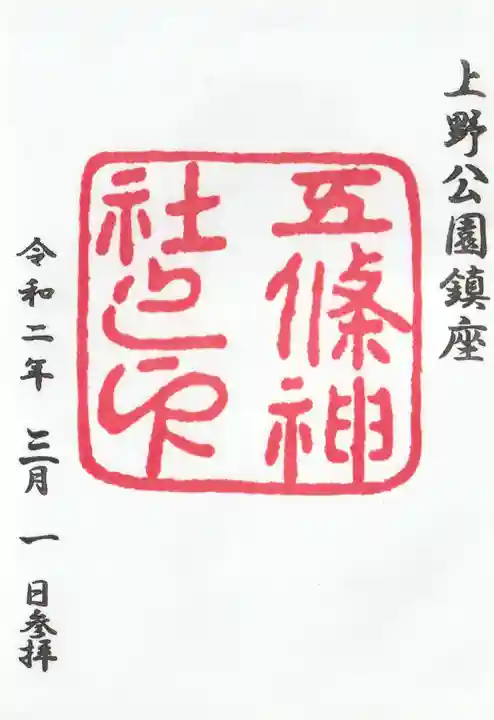 上野公園鎮座
五條神
社之印
令和二年 三月 一 日参拝